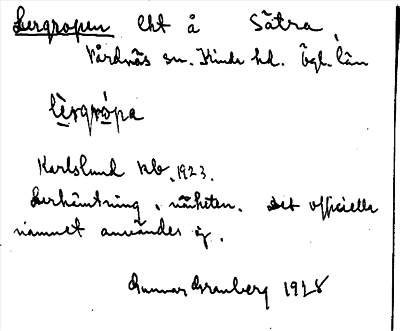 Lergropen lht å Sätra,
Vårdnäs sn. Kinda hd. Ögl. län
lèrgrópa
Karlslund kb. 1923.
Lerhämtning i närheten. Det officiella
namnet användes ej.
Gunnar Granberg 1928